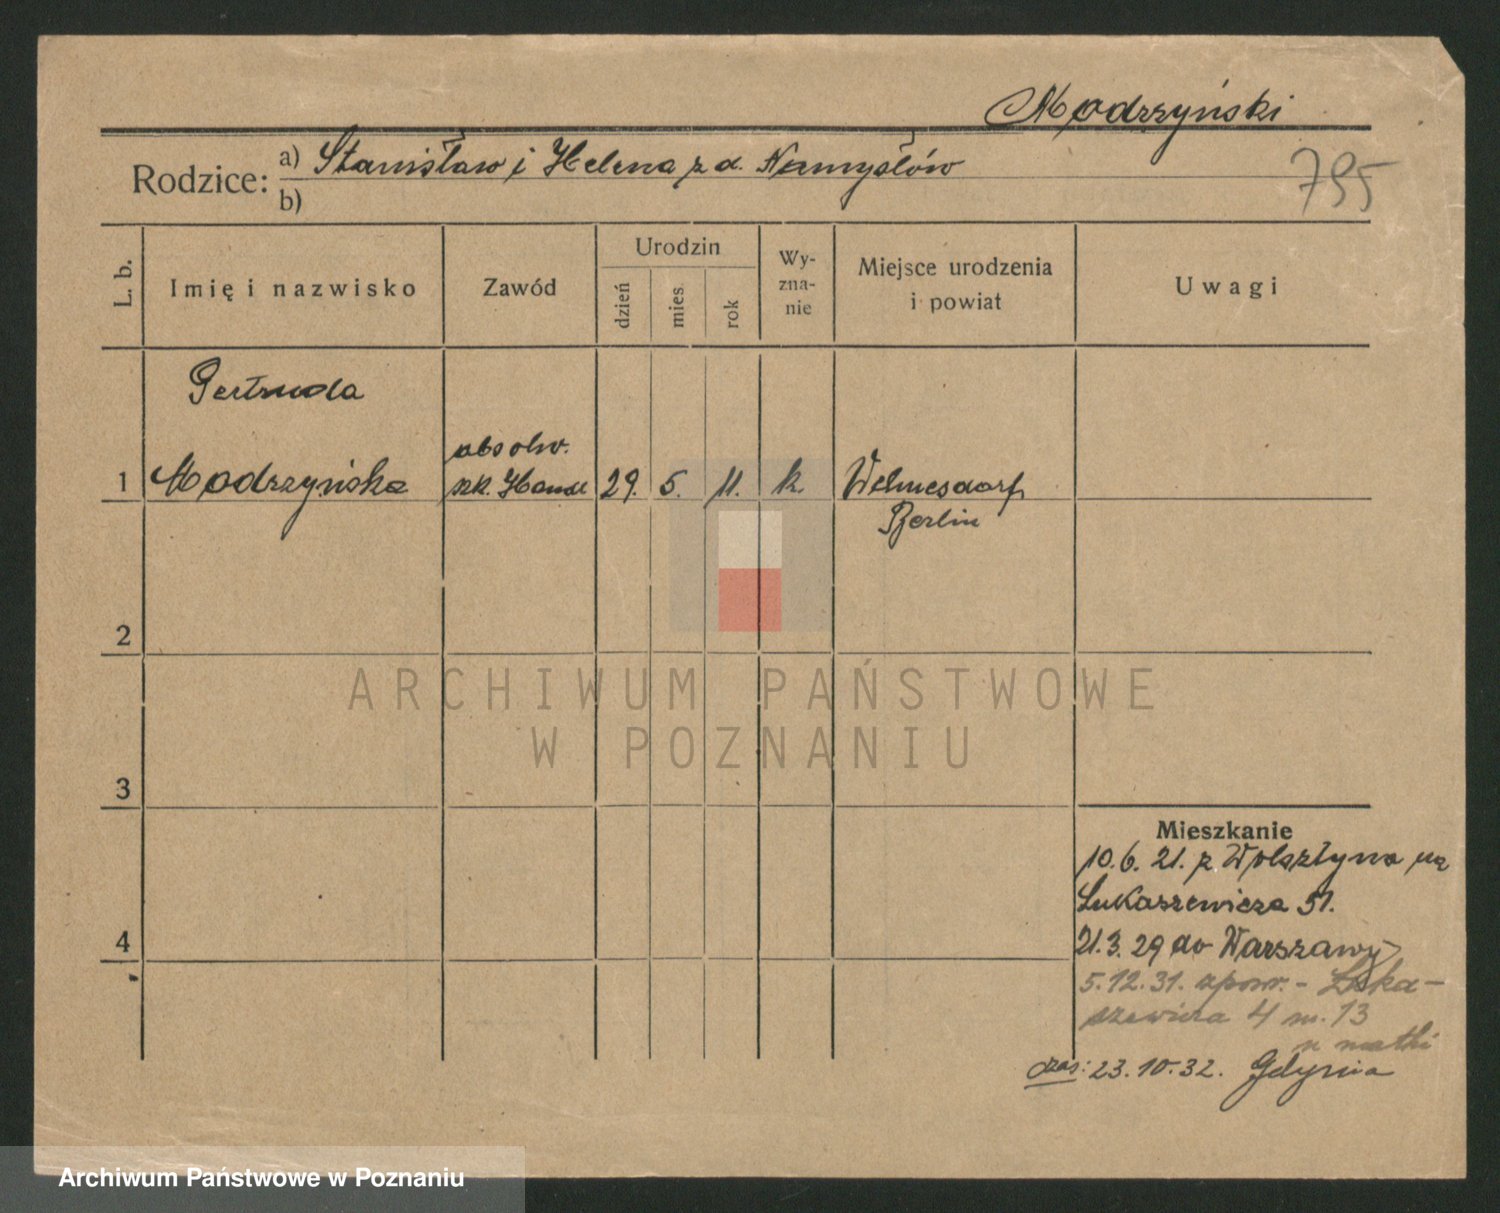 Modrzyński
Rodzice: a) Stanisław i Helena z d. Namysłów
b)
795
L. b.
Imię i nazwisko
Zawód
Urodzin
dzień
mies.
rok
Wy-
zna-
nie
Miejsce urodzenia
i powiat
Uwagi
Gertruda
1 Modrzyńska
absolw.
szk. Handl
29. 5. 11. k. Welmesdorf
Berlin
2
ARCHIWUM PAŃSTWOWE
W POZNANIU
3
4
Mieszkanie
10.6.21. z Wolsztyna na
Łukaszewicza 51.
21.3.29 do Warszawy
5.12.31. spowr. - Łuka-
szewicza 4 m. 13
u matki
czas: 23.10.32. Gdynia
Archiwum Państwowe w Poznaniu